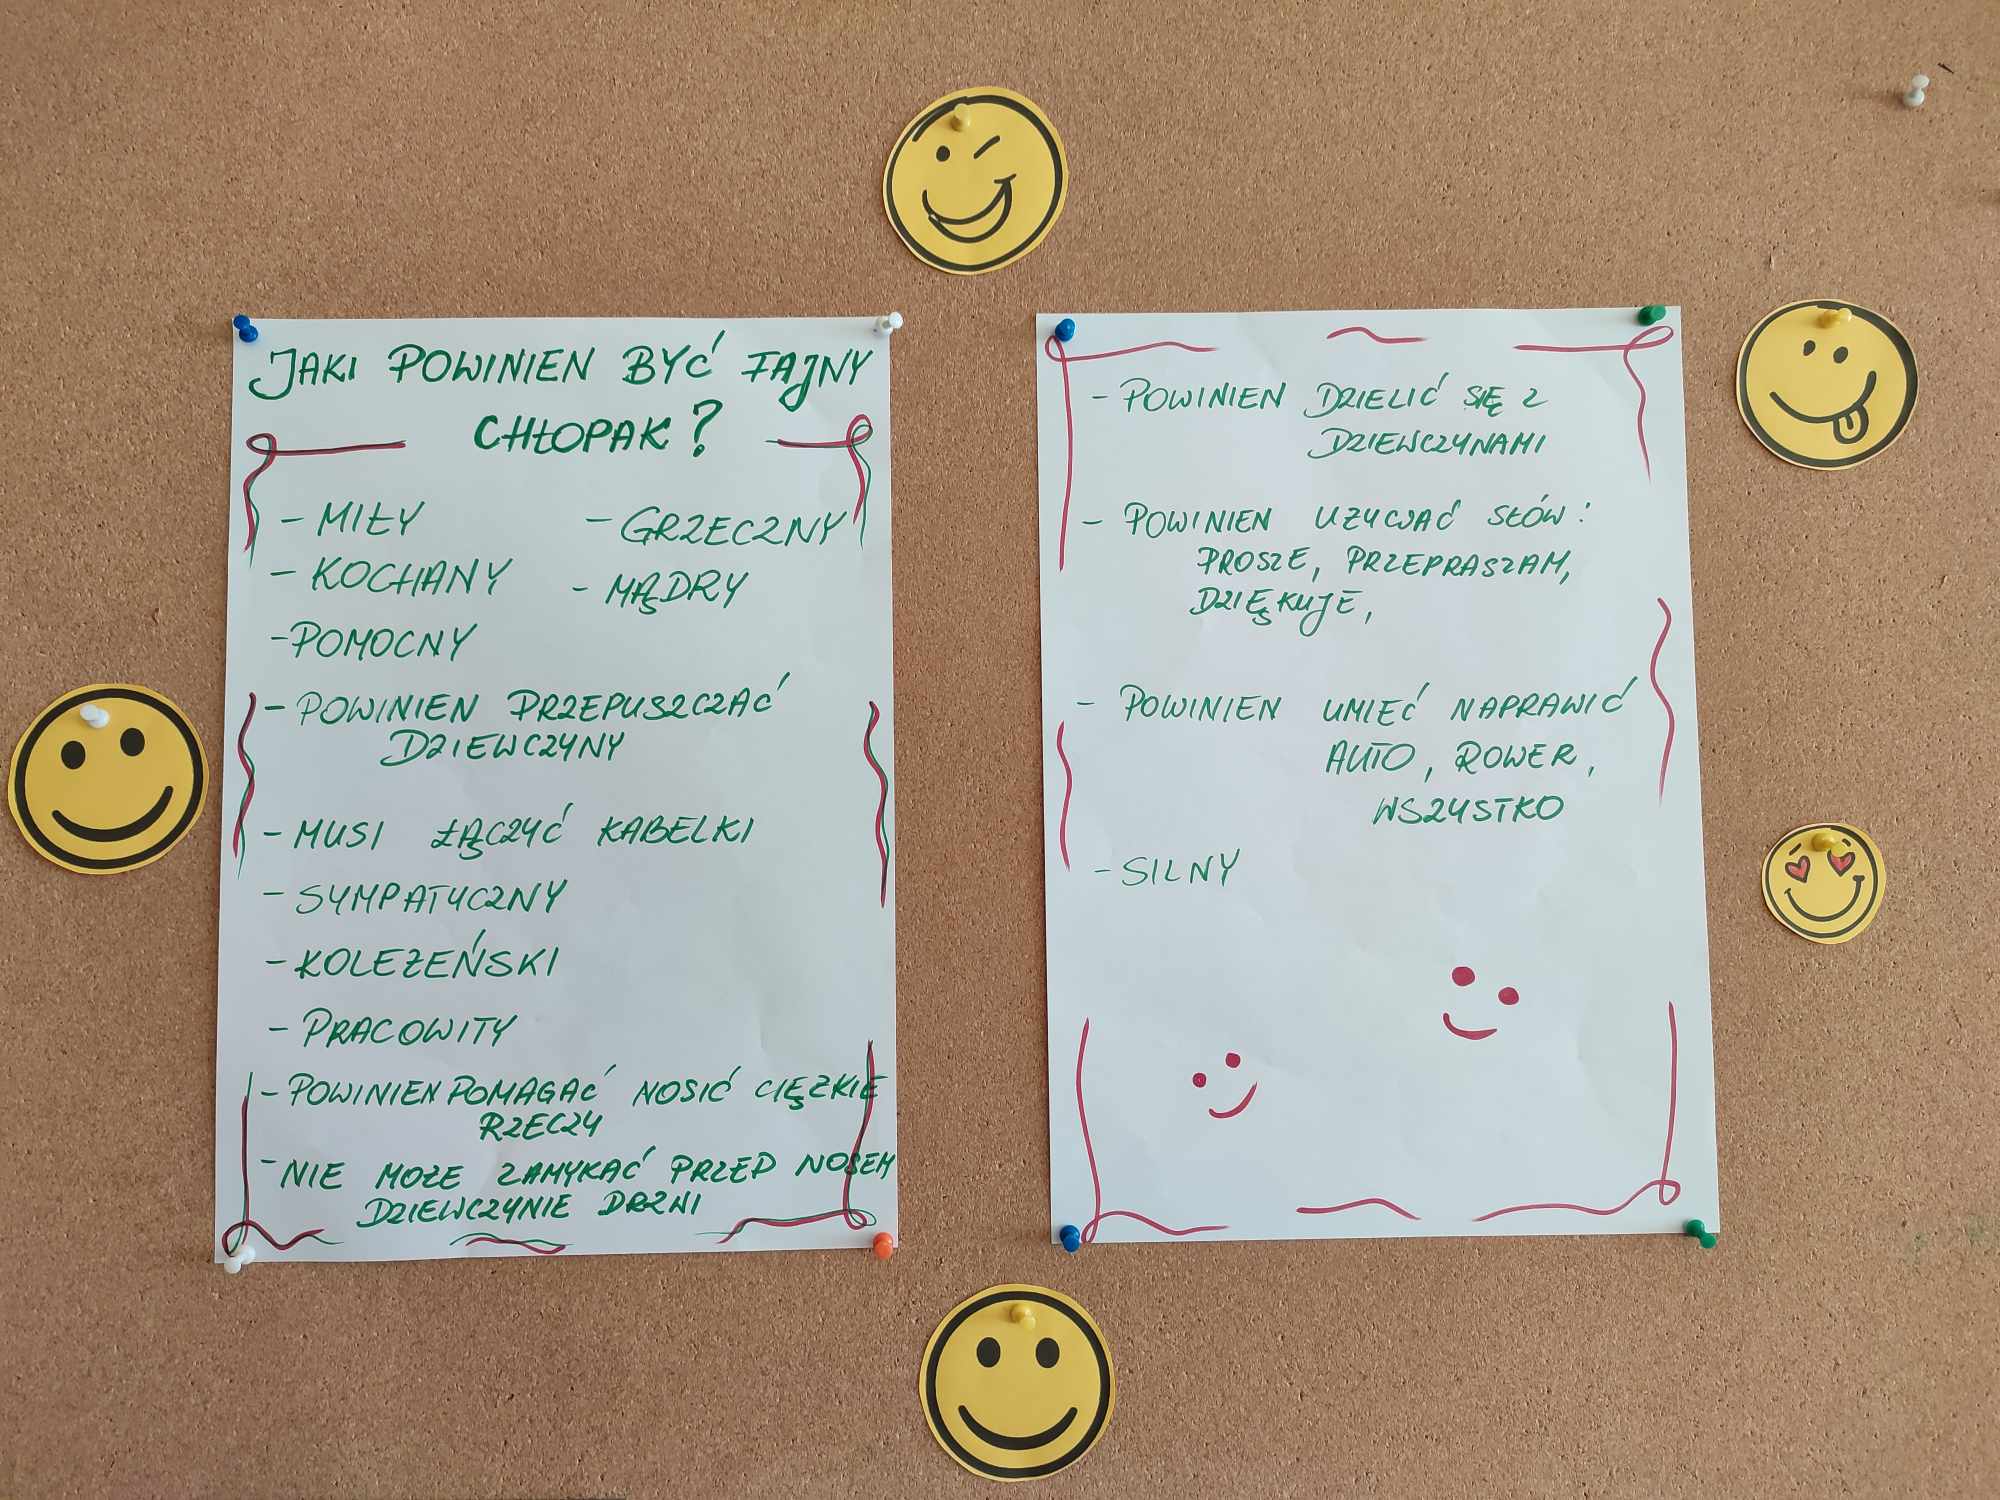 JAKI POWINIEN BYĆ FAJNY
CHŁOPAK?
- MIŁY
- GRZECZNY
- KOCHANY
- MĄDRY
- POMOCNY
- POWINIEN PRZEPUSZCZAĆ
DZIEWCZYNY
- MUSI ŁĄCZYĆ KABELKI
- SYMPATYCZNY
- KOLEŻEŃSKI
- PRACOWITY
- POWINIEN POMAGAĆ NOSIĆ CIĘŻKIE
RZECZY
- NIE MOŻE ZAMYKAĆ PRZED NOSEM
DZIEWCZYNIE DRZWI
- POWINIEN DZIELIĆ SIĘ Z
DZIEWCZYNAMI
- POWINIEN UŻYWAĆ SŁÓW:
PROSZE, PRZEPRASZAM,
DZIĘKUJE,
- POWINIEN UMIEĆ NAPRAWIĆ
AUTO, ROWER,
WSZYSTKO
- SILNY